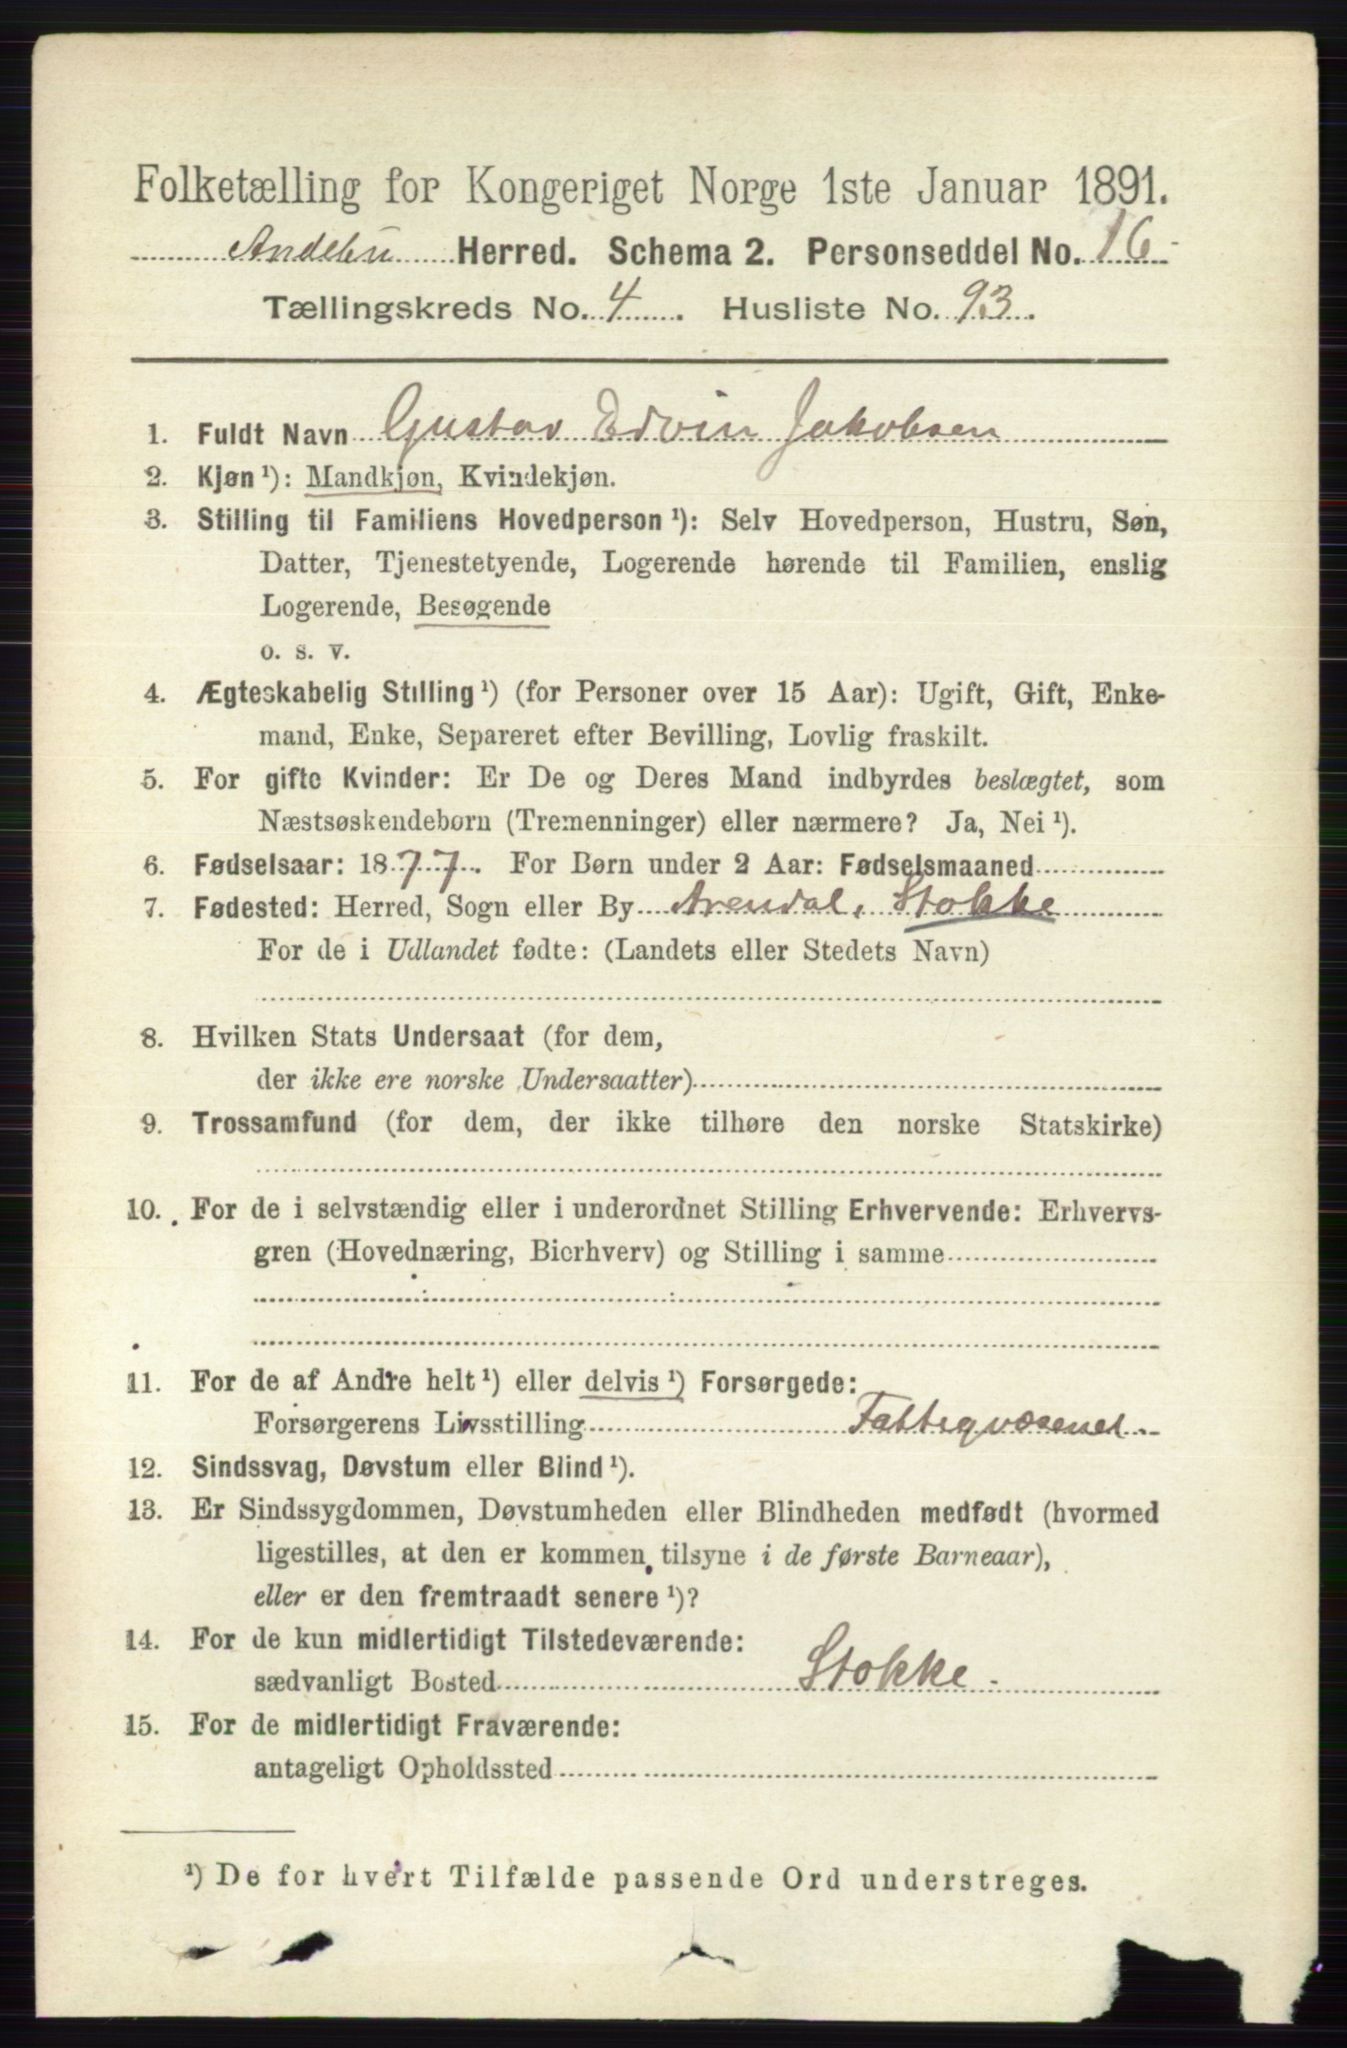 Folketælling for Kongeriget Norge 1ste Januar 1891.
Andebu Herred. Schema 2. Personseddel No. 16
Tællingskreds No. 4. Husliste No. 93.
1. Fuldt Navn Gustav Edvin Jakobsen
2. Kjøn¹): Mandkjøn, Kvindekjøn.
3. Stilling til Familiens Hovedperson¹): Selv Hovedperson, Hustru, Søn,
Datter, Tjenestetyende, Logerende hørende til Familien, enslig
Logerende, Besøgende
o. s. v.
4. Ægteskabelig Stilling¹) (for Personer over 15 Aar): Ugift, Gift, Enke-
mand, Enke, Separeret efter Bevilling, Lovlig fraskilt.
5. For gifte Kvinder: Er De og Deres Mand indbyrdes beslægtet, som
Næstsøskendebørn (Tremenninger) eller nærmere? Ja, Nei¹).
6. Fødselsaar: 1877. For Børn under 2 Aar: Fødselsmaaned
7. Fødested: Herred, Sogn eller By Arendal, Stokke
For de i Udlandet fødte: (Landets eller Stedets Navn)
8. Hvilken Stats Undersaat (for dem,
der ikke ere norske Undersaatter)
9. Trossamfund (for dem, der ikke tilhøre den norske Statskirke)
10. For de i selvstændig eller i underordnet Stilling Erhvervende: Erhvervs-
gren (Hovednæring, Bierhverv) og Stilling i samme
11. For de af Andre helt¹) eller delvis¹) Forsørgede:
Forsørgerens Livsstilling Fattigvæsenet.
12. Sindssvag, Døvstum eller Blind¹).
13. Er Sindssygdommen, Døvstumheden eller Blindheden medfødt (hvormed
ligestilles, at den er kommen tilsyne i de første Barneaar),
eller er den fremtraadt senere¹)?
14. For de kun midlertidigt Tilstedeværende:
sædvanligt Bosted Stokke.
15. For de midlertidigt Fraværende:
antageligt Opholdssted
¹) De for hvert Tilfælde passende Ord understreges.